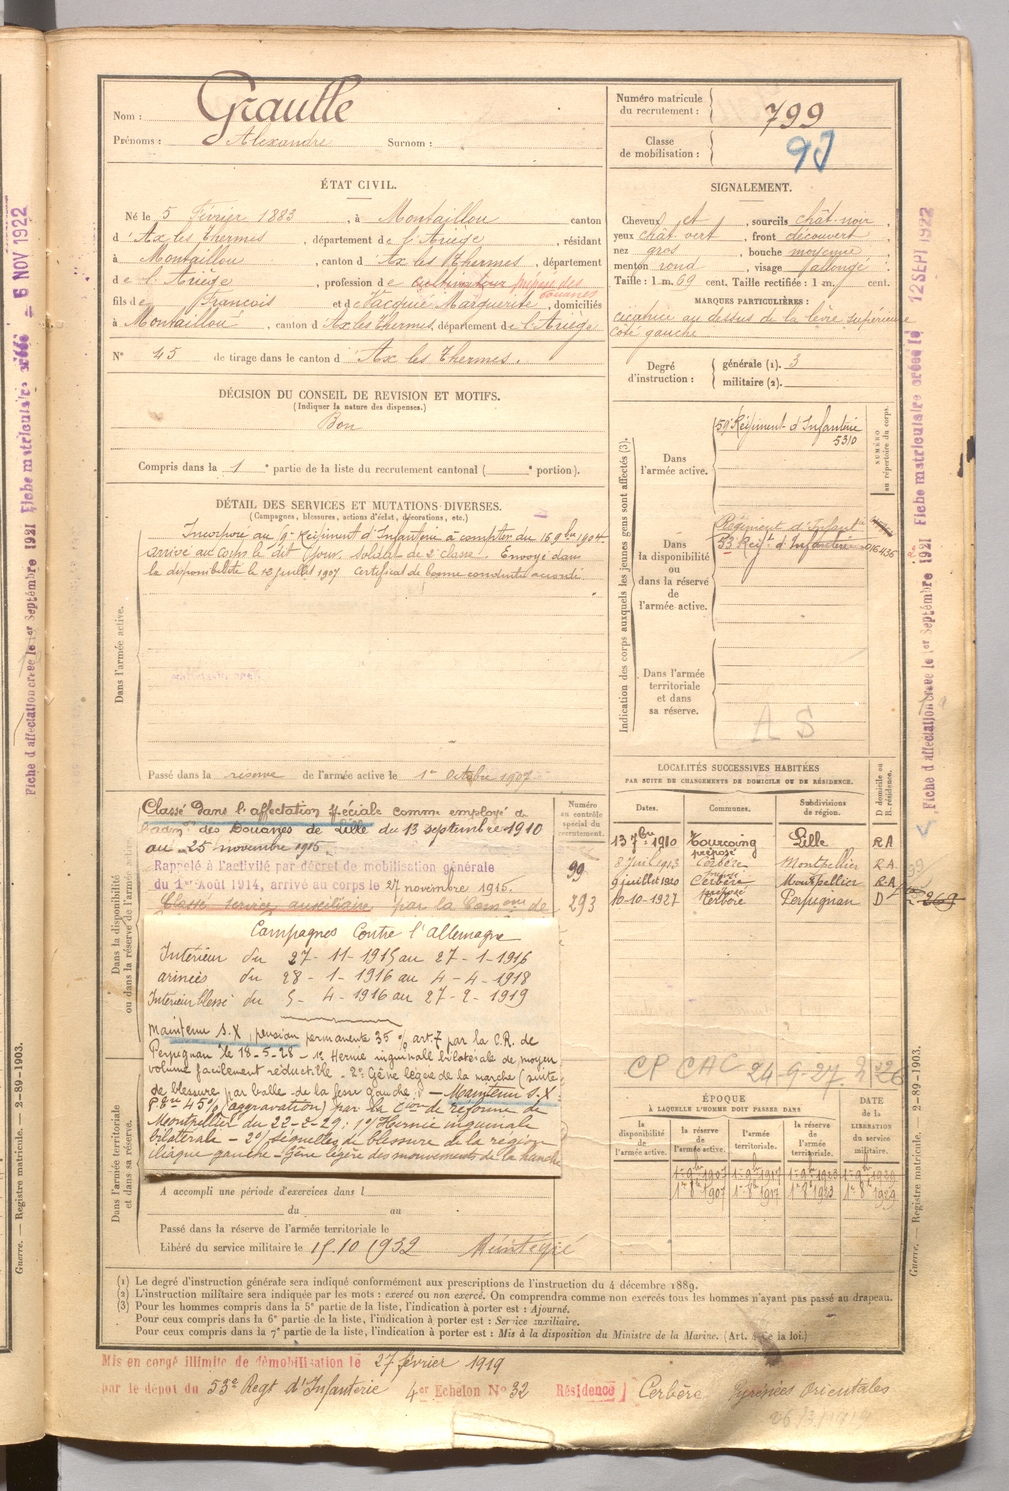 Nom : Graulle
Prénoms : Alexandre Surnom :
Numéro matricule du recrutement : 799
Classe de mobilisation :
ÉTAT CIVIL.
Né le 5 Février 1883, à Montaillou canton
d'Ax les Thermes, département de l'Ariège, résidant
à Montaillou, canton d'Ax les Thermes, département
de l'Ariège, profession de cultivateur préposé des douanes
fils de François et de Jacquié Marguerite, domiciliés
à Montaillou, canton d'Ax les Thermes, département de l'Ariège
N° 45 de tirage dans le canton d'Ax les Thermes.
SIGNALEMENT.
Cheveux et sourcils chât-noir
yeux chât vert, front découvert
nez gros, bouche moyenne
menton rond, visage allongé
Taille : 1 m. 69 cent. Taille rectifiée : 1 m. cent.
MARQUES PARTICULIÈRES :
cicatrice au dessus de la lèvre supérieure
côté gauche
Degré d'instruction : générale (1). 3
militaire (2).
DÉCISION DU CONSEIL DE REVISION ET MOTIFS.
(Indiquer la nature des dispenses.)
Bon
Compris dans la 1e partie de la liste du recrutement cantonal ( e portion).
DÉTAIL DES SERVICES ET MUTATIONS DIVERSES.
(Campagnes, blessures, actions d'éclat, décorations, etc.)
Dans l'armée active.
Incorporé au Régiment d'Infanterie à compter du 16 9bre 1904
arrivé au corps le dit jour. Soldat de 2e classe. Envoyé dans
la disponibilité le 12 juillet 1907 Certificat de bonne conduite accordé.
Passé dans la réserve de l'armée active le 1er Octobre 1907
Indication des corps auxquels les jeunes gens sont affectés (3).
NUMÉRO au répertoire du corps.
Dans l'armée active.
59e Régiment d'Infanterie
5310
Dans la disponibilité ou dans la réserve de l'armée active.
Régiment d'Infanterie
53e Régt d'Infanterie 016436
Dans l'armée territoriale et dans sa réserve.
A S
Dans la disponibilité ou dans la réserve de l'armée active.
Classé dans l'affectation spéciale comme employé de
l'admon des Douanes de Lille du 13 septembre 1910
au 25 novembre 1915.
Rappelé à l'activité par décret de mobilisation générale
du 1er Août 1914, arrivé au corps le 27 novembre 1915.
Classé service auxiliaire par la Comon de
Numéro au contrôle spécial du recrutement.
99
293
Campagnes Contre l'Allemagne
Intérieur du 27-11-1915 au 27-1-1916
armées du 28-1-1916 au 4-4-1918
Intérieur blessé du 5-4-1916 au 27-2-1919
Maintenu S.X, pension permanente 35 % art. 7 par la C.R. de
Perpignan le 18-5-28 - 1° Hernie inguinale bilatérale de moyen
volume facilement réductible - 2° Gêne légère de la marche (suite
de blessure par balle de la fesse gauche) - Maintenu S.X
45% (aggravation) par la Con de réforme de
Montpellier du 22-2-29 : 1° Hernie inguinale
bilatérale - 2° séquelles de blessure de la région
iliaque gauche - Gêne légère des mouvements de la hanche
Dans l'armée territoriale et dans sa réserve.
A accompli une période d'exercices dans l
du au
Passé dans la réserve de l'armée territoriale le
Libéré du service militaire le 15.10 1932
LOCALITÉS SUCCESSIVES HABITÉES
PAR SUITE DE CHANGEMENTS DE DOMICILE OU DE RÉSIDENCE.
Dates. Communes. Subdivisions de région. D domicile ou R. résidence.
13 7bre 1910 Tourcoing préposé Lille RA
8 Juil 1913 Cerbère Montpellier R.A
9 juillet 1920 Cerbère Montpellier R.A
10-10-1927 Cerbère Perpignan D
CP CAC 24-9-27.
ÉPOQUE
À LAQUELLE L'HOMME DOIT PASSER DANS
la disponibilité de l'armée active. la réserve de l'armée active. l'armée territoriale. la réserve de l'armée territoriale. DATE de la LIBÉRATION du service militaire.
1er 8bre 1907 1er 8bre 1917 1er 8bre 1923 1er 8bre 1929
(1) Le degré d'instruction générale sera indiqué conformément aux prescriptions de l'instruction du 4 décembre 1889.
(2) L'instruction militaire sera indiquée par les mots : exercé ou non exercé. On comprendra comme non exercés tous les hommes n'ayant pas passé au drapeau.
(3) Pour les hommes compris dans la 5e partie de la liste, l'indication à porter est : Ajourné.
Pour ceux compris dans la 6e partie de la liste, l'indication à porter est : Service auxiliaire.
Pour ceux compris dans la 7e partie de la liste, l'indication à porter est : Mis à la disposition du Ministre de la Marine. (Art. de la loi.)
Mis en congé illimité de démobilisation le 27 février 1919
par le dépôt du 53e Regt d'Infanterie 4er Echelon N° 32 Résidence Cerbère Pyrénées Orientales
Guerre. — Registre matricule. — 2-89-1903.
Guerre. — Registre matricule. — 2-89-1903.
Fiche d'affectation créée le 1er Septembre 1921 Fiche matriculaire créée le - 6 NOV 1922
Fiche d'affectation créée le 1er Septembre 1921 Fiche matriculaire créée le 12 SEPT 1922